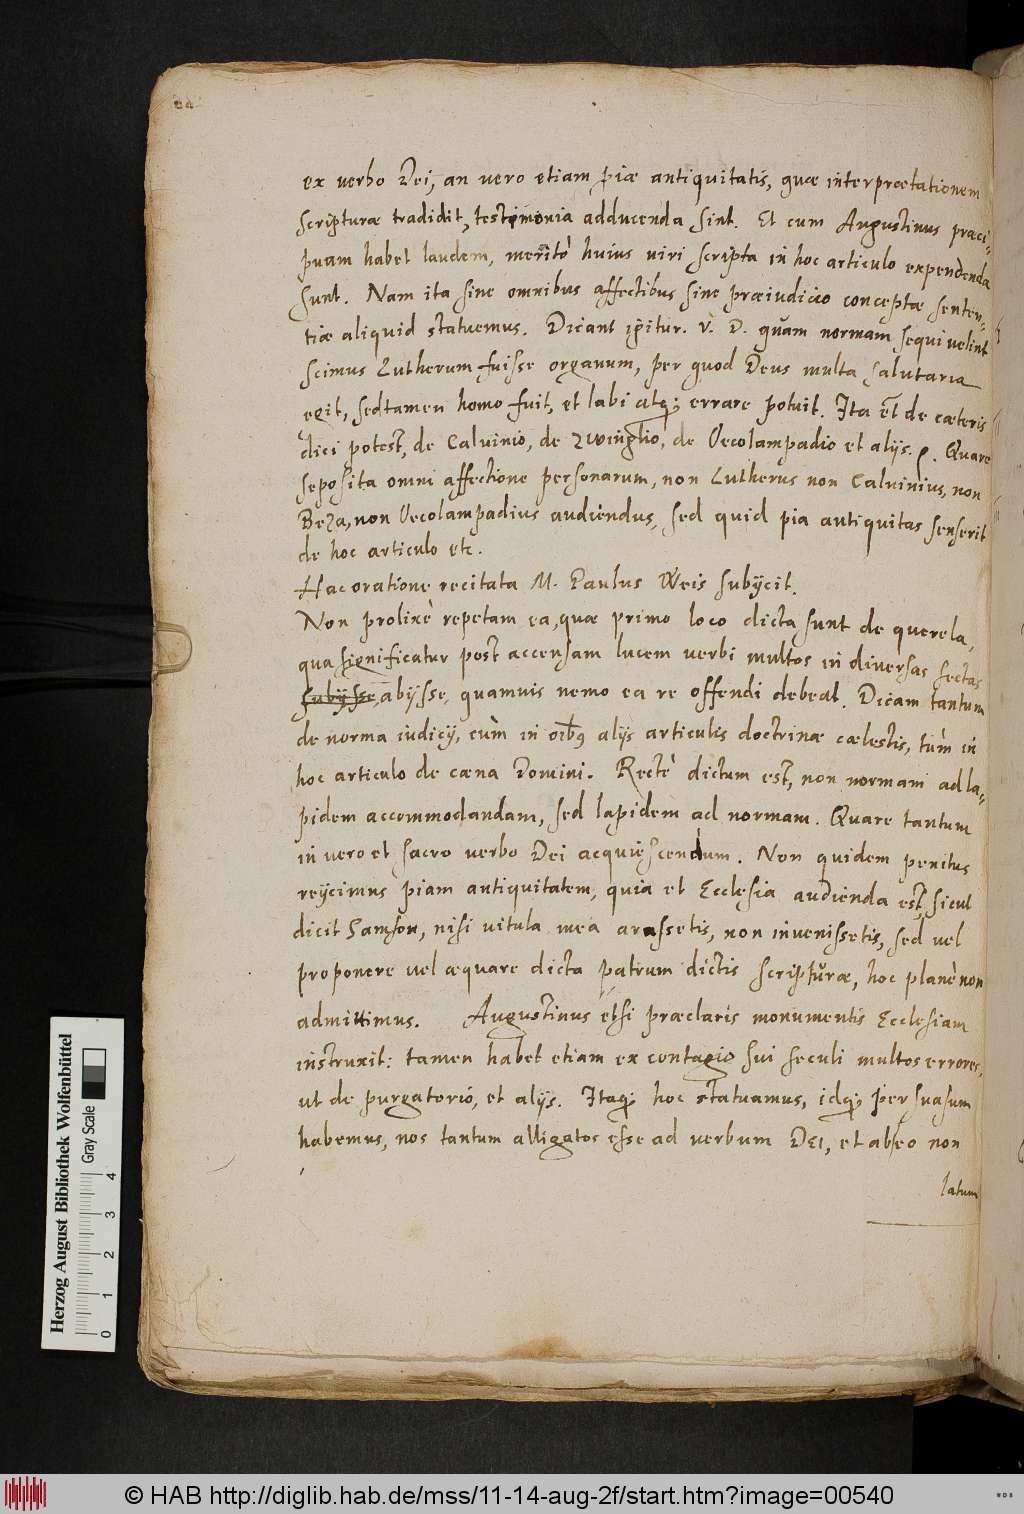 ex verbo Dei, an vero etiam piæ antiquitatis, quæ interprætationem
scripturæ tradidit, testimonia adducenda sint. Et cum Augustinus præci-
puam habet laudem, meritò huius viri scripta in hoc articulo expendenda
sunt. Nam ita sine omnibus affectibus sine præiudicio conceptæ senten-
tiæ aliquid statuemus. Dicant igitur. V. D. quam normam sequi velint
scimus Lutherum fuisse organum, per quod Deus multa salutaria
egit, sed tamen homo fuit, et labi atq; errare potuit. Ita et de cæteris
dici potest, de Caluinio, de Zwinglio, de Oecolampadio et alijs. Quare
seposita omni affectione personarum, non Lutherus non Caluinius, non
Beza, non Oecolampadius audiendus, sed quid pia antiquitas senserit
de hoc articulo etc.
Hac oratione recitata M. Paulus Weis subijcit.
Non prolixè repetam ea, quæ primo loco dicta sunt de querela,
qua significatur post accensam lucem verbi multos in diversas sectas
subijsse, abijsse, quamuis nemo ea re offendi debeat. Dicam tantum
de norma iudicij, cùm in oibq alijs articulis doctrinæ cælestis, tùm in
hoc articulo de cæna Domini. Rectè dictum est, non normam ad la-
pidem accommodandam, sed lapidem ad normam. Quare tantum
in vero et sacro verbo Dei acquiescendum. Non quidem penitus
reijcimus piam antiquitatem, quia et Ecclesia audienda est, sicut
dicit Samson, nisi vitula mea arassetis, non invenissetis, sed vel
proponere vel æquare dicta patrum dictis scripturæ, hoc planè non
admittimus. Augustinus etsi præclaris monumentis Ecclesiam
instruxit: tamen habet etiam ex contagio sui seculi multos errores,
ut de purgatorio, et alijs. Itaq; hoc statuamus, idq; persuasum
habemus, nos tantum alligatos esse ad verbum DEI, et ab eo non
latum
Herzog August Bibliothek Wolfenbüttel
Gray Scale
0 1 2 3 4
© HAB http://diglib.hab.de/mss/11-14-aug-2f/start.htm?image=00540